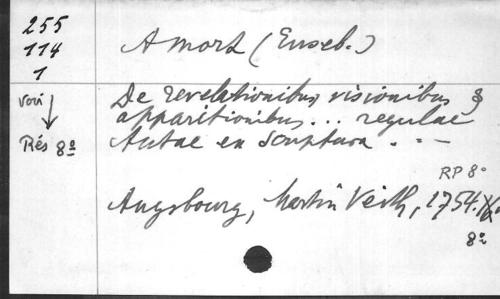 255
114
1
Amort (Euseb.)
voir
De revelationibus, visionibus &
apparitionibus... regulae
Rés 8º
tutae ex Scriptura . . —
RP 8º
Augsbourg, Martin Veith, 1754.
8º